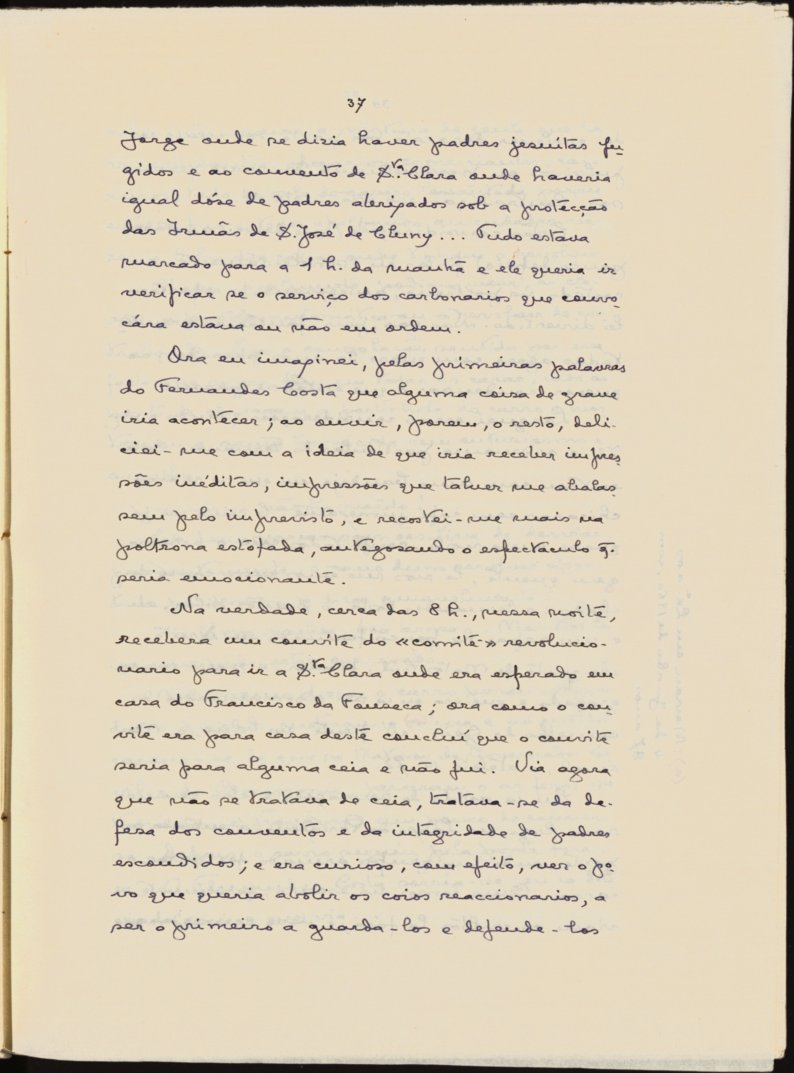 37
Jorge onde se dizia haver padres jesuitas fu-
gidos e ao convento de S.ta Clara onde haveria
igual dóse de padres abrigados sob a protecção
das Irmãs de S. José de Cluny... Tudo estava
marcado para a 1 h. da manhã e ele queria ir
verificar se o serviço dos carbonarios que convo-
cára estava ou não em ordem.
Ora eu imaginei, pelas primeiras palavras
do Fernandes Costa que alguma coisa de grave
iria acontecer; ao ouvir, porem, o resto, deli-
ciei-me com a ideia de que iria receber impres-
sões inéditas, impressões que talvez me abalas-
sem pelo imprevisto, e recostei-me mais na
poltrona estofada, antegosando o espectaculo q.
seria emocionante.
Na verdade, cerca das 8 h., nessa noite,
recebera um convite do «comité» revolucio-
nario para ir a S.ta Clara onde era esperado em
casa do Francisco da Fonseca; ora como o con-
vite era para casa deste concluí que o convite
seria para alguma ceia e não fui. Via agora
que não se tratava de ceia, tratava-se da de-
fesa dos conventos e da integridade de padres
escondidos; e era curioso, com efeito, ver o po-
vo que queria abolir os coios reaccionarios, a
ser o primeiro a guarda-los e defende-los